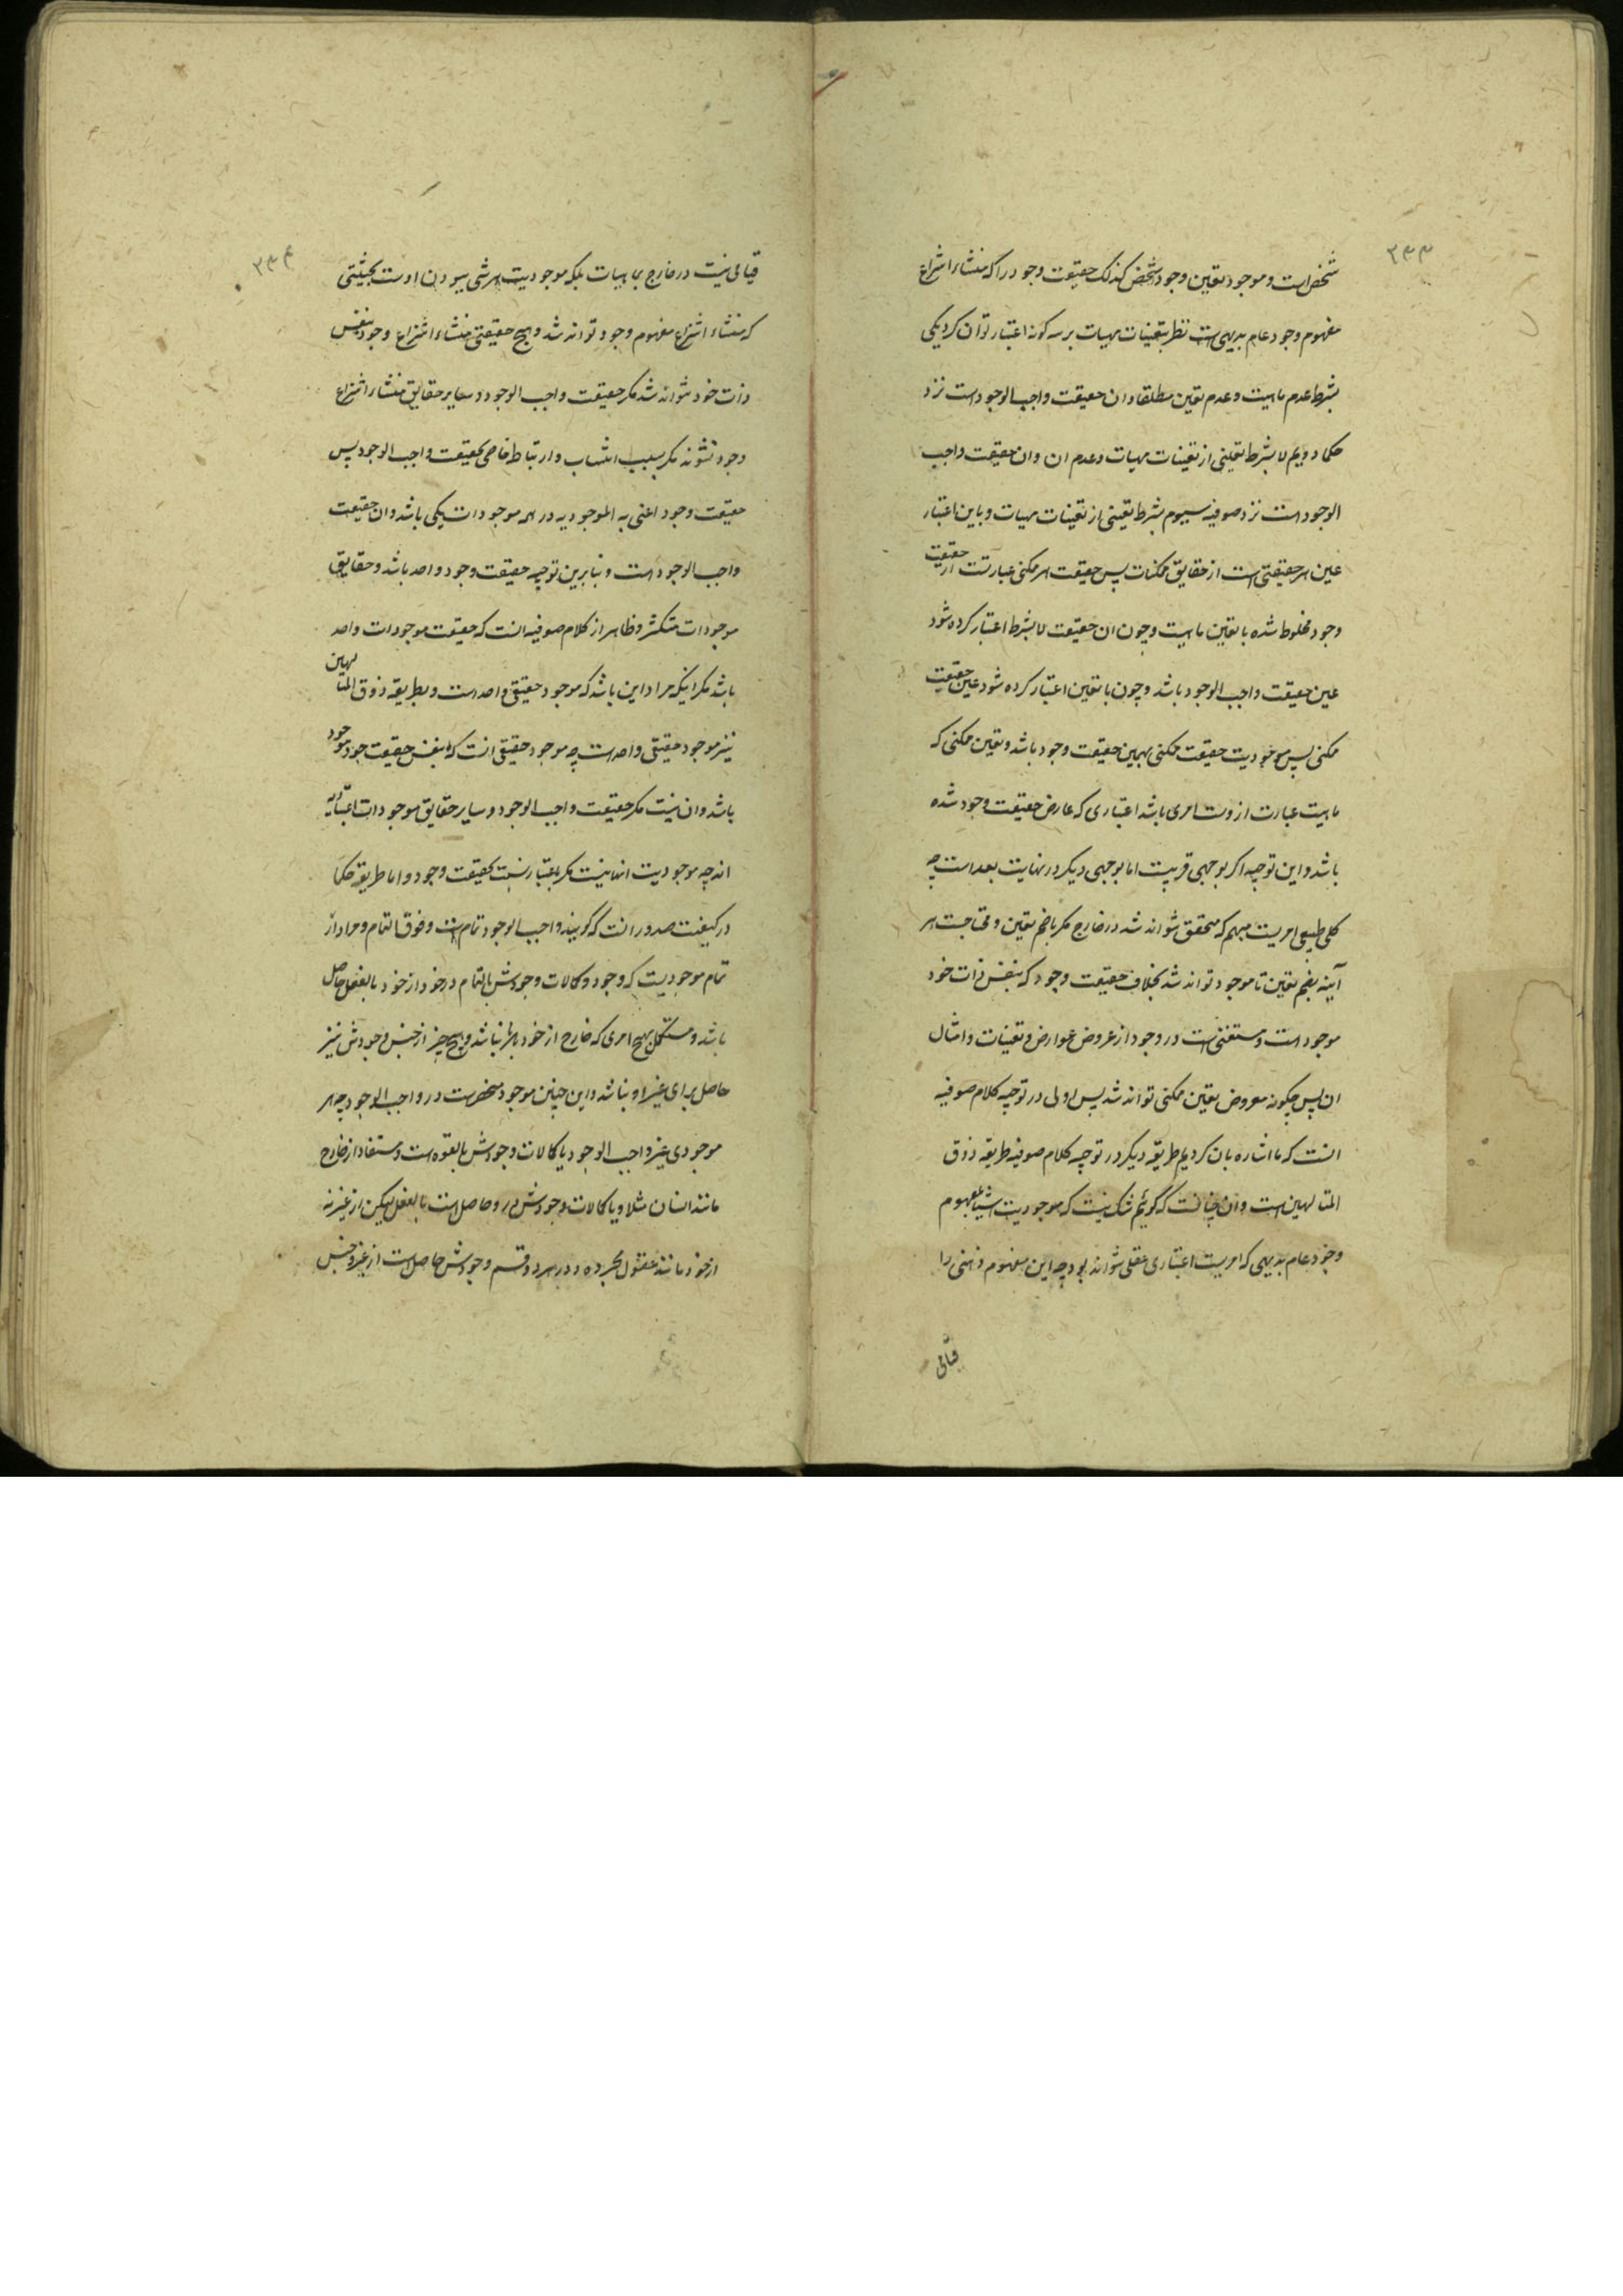 ۲۳۳
شخص است و موجود بتعین وجود شخص کذلک حقیقت وجود را که منشاء انتزاع
مفهوم وجود عام بدیهی است نظر بتعینات مهیات بر سه کونه اعتبار توان کرد یکی
بشرط عدم ماهیت و عدم تعین مطلقا و ان حقیقت واجب الوجود است نزد
حکما دویم لا بشرط تعینی از تعینات مهیات و عدم ان و ان حقیقت واجب
الوجود است نزد صوفیه سیوم بشرط تعینی از تعینات مهیات و باین اعتبار
عین هر حقیقتی است از حقایق ممکنات پس حقیقت هر ممکنی عبارتست از حقیقت
وجود مخلوط شده با تعین ماهیت و چون ان حقیقت لا بشرط اعتبار کرده شود
عین حقیقت واجب الوجود باشد و چون با تعین اعتبار کرده شود عین حقیقت
ممکنی پس موجودیت حقیقت ممکنی بهمین حقیقت وجود باشد و تعین ممکنی که
ماهیت عبارت ازوست امری باشد اعتباری که عارض حقیقت وجود شده
باشد و این توجیه اکر بوجهی قریبست اما بوجهی دیکر در نهایت بعد است چه
کلی طبیعی امریست مبهم که متحقق نتواند شد در خارج مکر با ضم تعین و محتاجست هر
آینه بضم تعین تا موجود تواند شد بخلاف حقیقت وجود که بنفس ذات خود
موجود است و مستغنی است در وجود از عروض عوارض و تعینات و امثال
ان پس چکونه معروض تعین ممکنی تواند شد پس اولی در توجیه کلام صوفیه
انست که ما اشاره بان کردیم طریقه دیکر در توجیه کلام صوفیه طریقه ذوق
المتالهین است و ان چنانست که کوئیم شک نیست که موجودیت اشیا بمفهوم
وجود عام بدیهی که امریست اعتباری عقلی نتواند بود چه این مفهوم ذهنی را
قیامی
۲۳۴
قیامی نیست در خارج بماهیات بلکه موجودیت هر شی ببودن اوست بحیثیتی
که منشاء انتزاع مفهوم وجود تواند شد و هیچ حقیقتی منشاء انتزاع وجود بنفس
ذات خود نتواند شد مکر حقیقت واجب الوجود و سایر حقایق منشاء انتزاع
وجود نشوند مکر بسبب انتساب و ارتباط خاصی بحقیقت واجب الوجود پس
حقیقت وجود اعنی به الموجودیه در همه موجودات یکی باشد و ان حقیقت
واجب الوجود است و بنابرین توجیه حقیقت وجود واحد باشد و حقایق
موجودات متکثر و ظاهر از کلام صوفیه انست که حقیقت موجودات واحد
باشد مکر اینکه مراد این باشد که موجود حقیقی واحد است و بطریقه ذوق المتالهین
نیز موجود حقیقی واحد است چه موجود حقیقی انست که بنفس حقیقت خود موجود
باشد و ان نیست مکر حقیقت واجب الوجود و سایر حقایق موجودات اعتباریه
اند چه موجودیت انها نیست مکر باعتبار نسبت بحقیقت وجود و اما طریقه حکما
در کیفیت صدور انست که کویند واجب الوجود تام است و فوق التمام و مراد از
تمام موجودیست که وجود و کمالات وجودش بالتمام در خود از خود بالفعل حاصل
باشد و مستکمل بهیچ امری که خارج از خود باشد نباشد و هیچ چیز از جنس وجودش نیز
حاصل برای غیر او نباشد و این چنین موجود منحصر است در واجب الوجود چه هر
موجودی غیر واجب الوجود یا کمالات وجودش بالقوه است و مستفاد از خارج
مانند انسان مثلا و یا کمالات وجودش در و حاصل است بالفعل لیکن از غیر نه
از خود مانند عقول مجرده و در هر دو قسم وجودش حاصل است از غیر و جنس